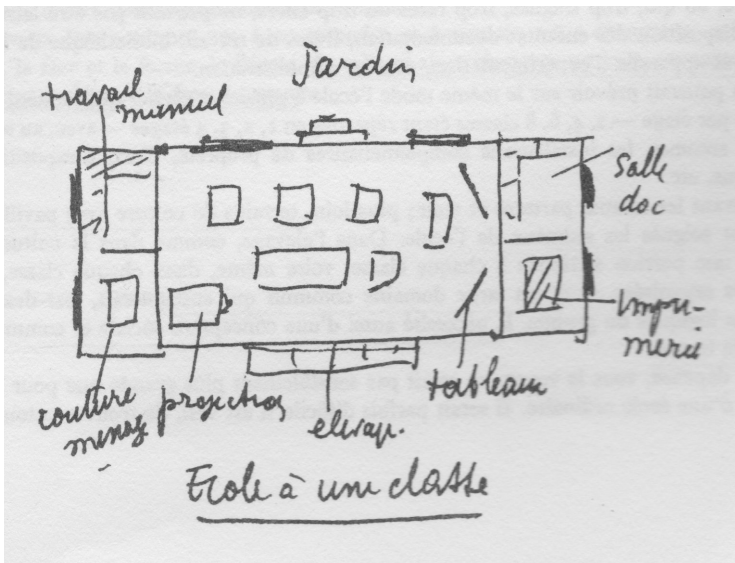 Jardin
travail
manuel
Salle
doc
impri-
merie
couture
menag
projection
elevag.
tableau
Ecole à une classe